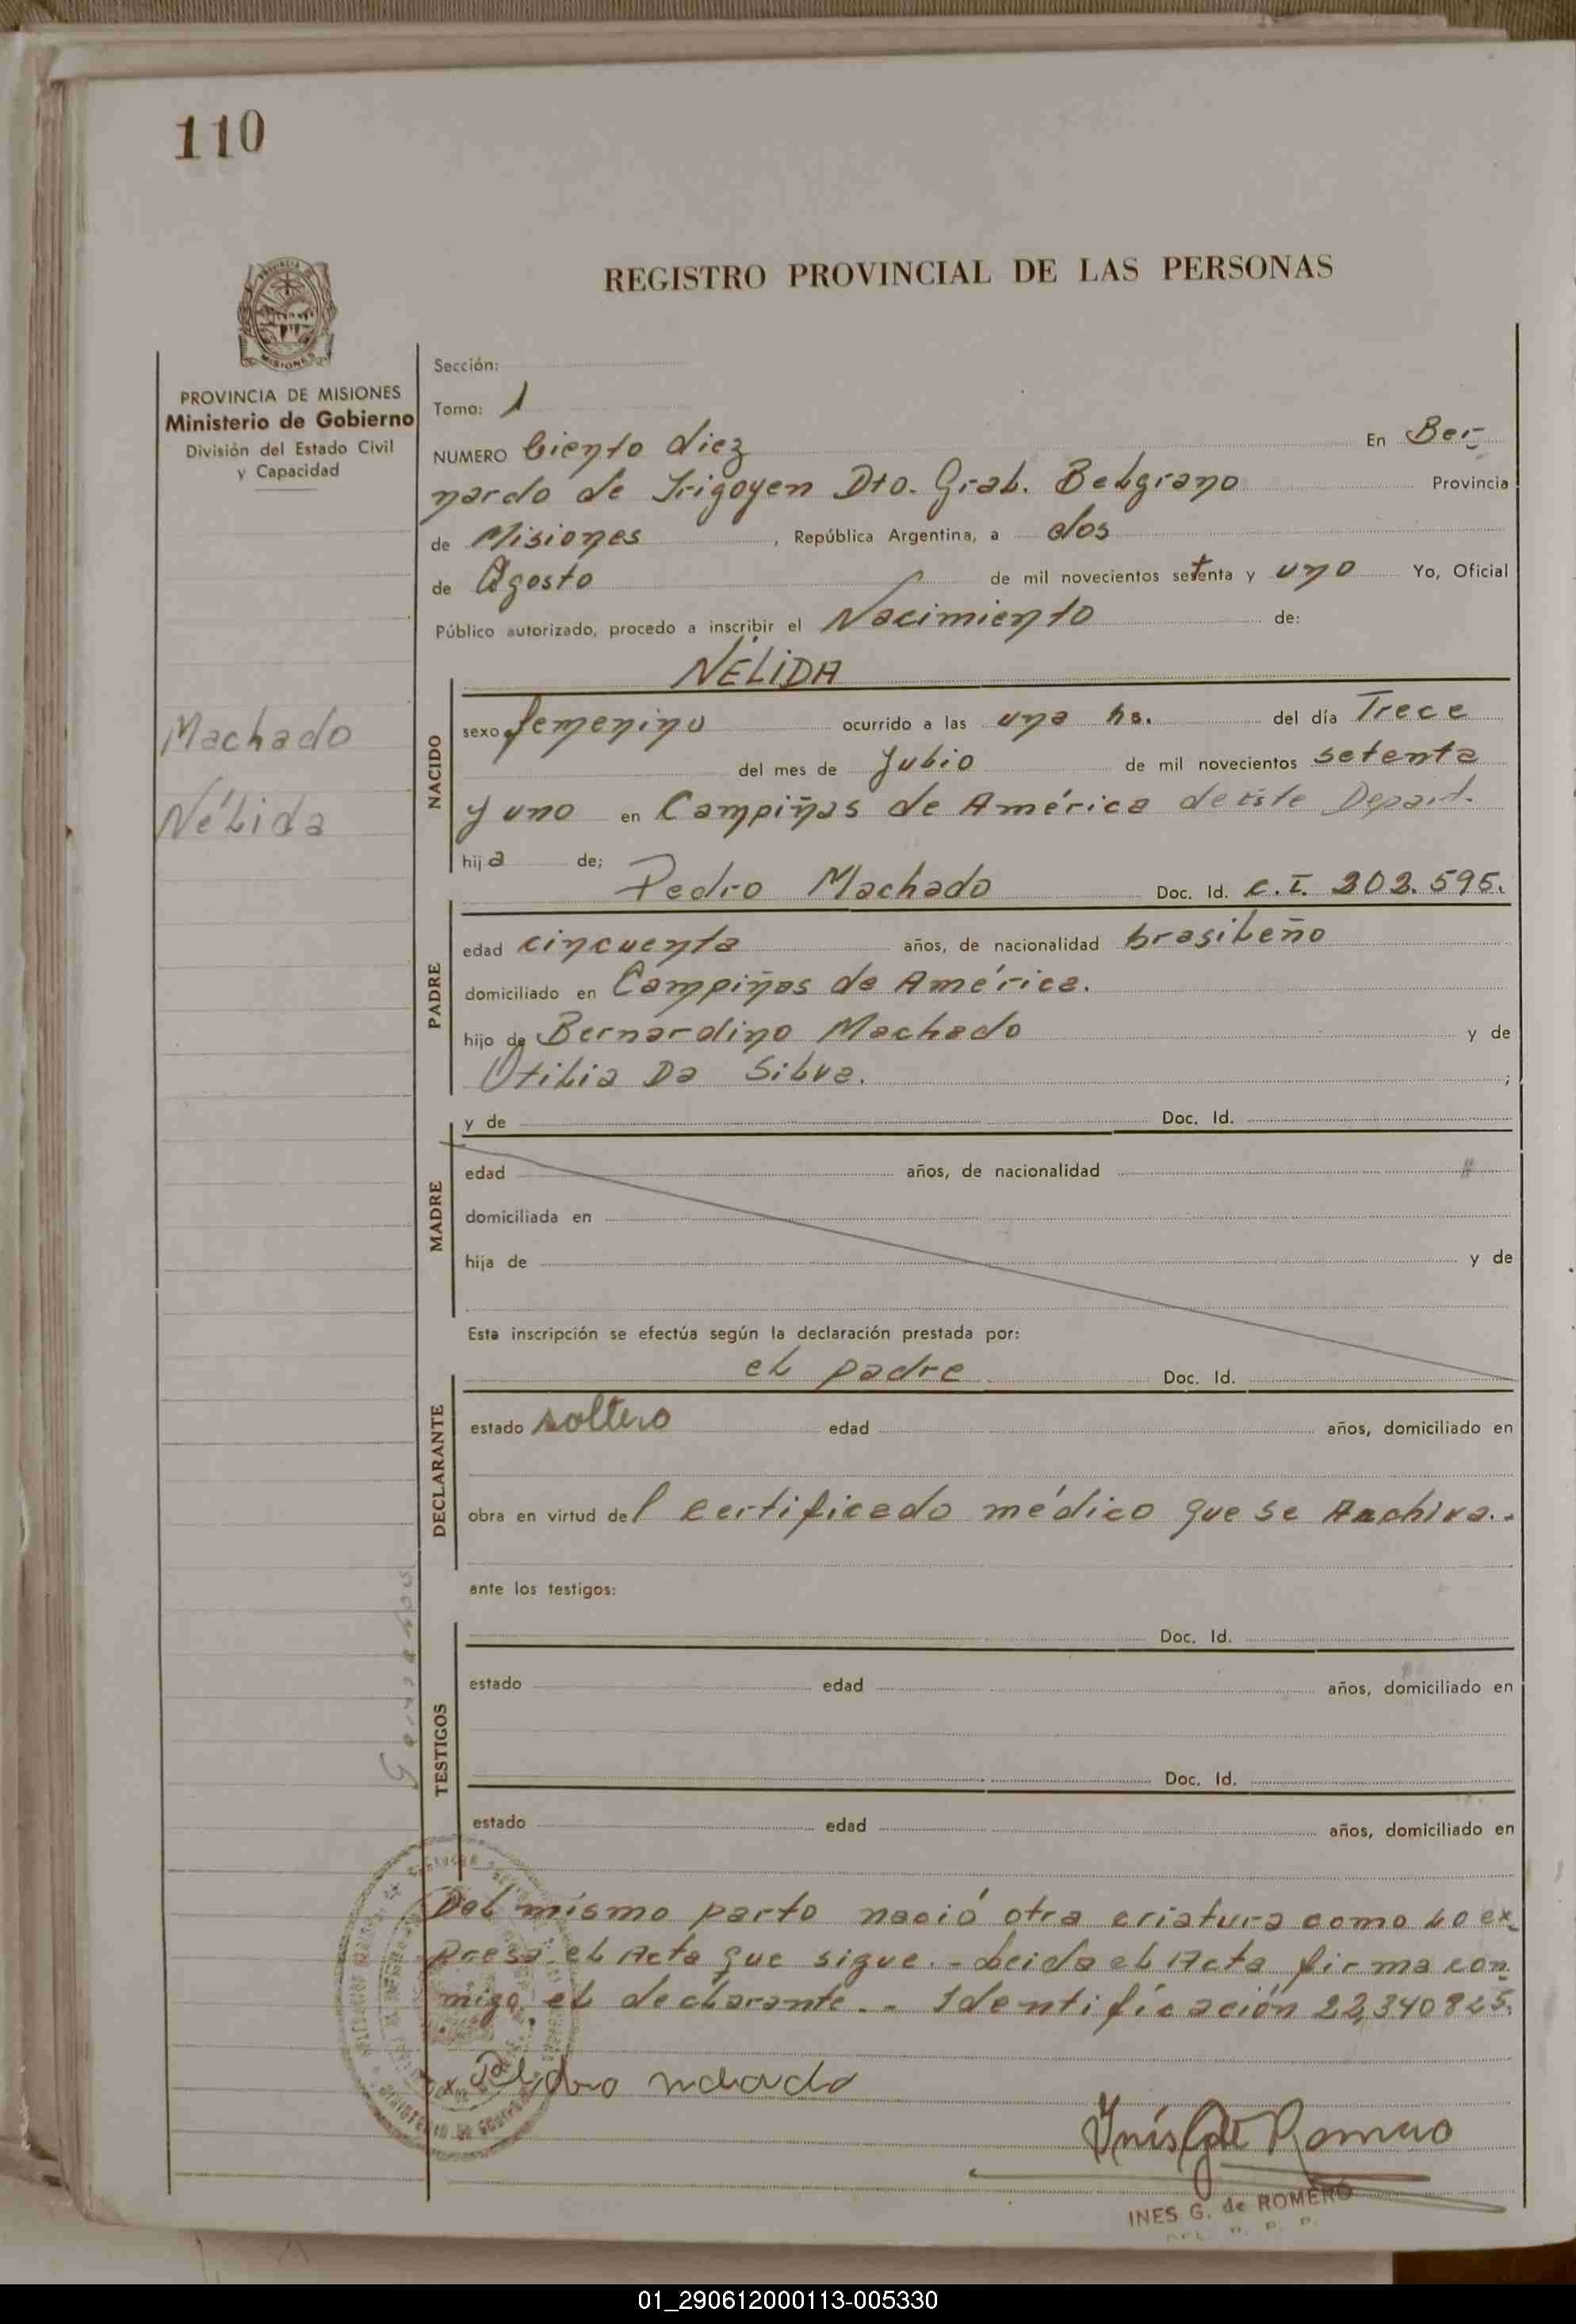 110
REGISTRO PROVINCIAL DE LAS PERSONAS
PROVINCIA DE MISIONES
Ministerio de Gobierno
División del Estado Civil
y Capacidad
Machado
Nélida
Gemelos
Sección:
Tomo: 1
NUMERO Ciento diez En Ber-
nardo de Irigoyen Dto. Gral. Belgrano Provincia
de Misiones, República Argentina, a dos
de Agosto de mil novecientos setenta y uno Yo, Oficial
Público autorizado, procedo a inscribir el Nacimiento de:
NÉLIDA
NACIDO
sexo femenino ocurrido a las una hs. del día Trece
del mes de Julio de mil novecientos setenta
y uno en Campiñas de América de éste Depart.
hija de; Pedro Machado Doc. Id. C.I. 202.595.
PADRE
edad cincuenta años, de nacionalidad brasileño
domiciliado en Campiñas de América.
hijo de Bernardino Machado y de
Otilia Da Silva. ;
y de Doc. Id.
MADRE
edad años, de nacionalidad
domiciliada en
hija de y de
Esta inscripción se efectúa según la declaración prestada por:
el padre Doc. Id.
DECLARANTE
estado soltero edad años, domiciliado en
obra en virtud del certificado médico que se Archiva..
ante los testigos:
TESTIGOS
Doc. Id.
estado edad años, domiciliado en
Doc. Id.
estado edad años, domiciliado en
Del mismo parto nació otra criatura como lo ex-
presa el Acta que sigue.- Leida el Acta firma con-
migo, el declarante.- Identificación 22,340825.
Inés G de Romero
INES G. de ROMERO
01_290612000113-005330